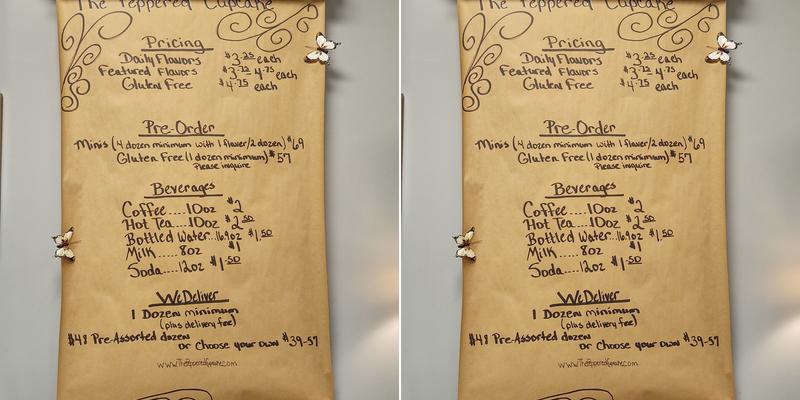 The Peppered Cupcake
Pricing
Daily Flavors $3.25 each
Featured Flavors $3.75 4.75 each
Gluten Free $4.75 each
Pre-Order
Minis (4 dozen minimum with 1 flavor/2 dozen) $69
Gluten Free (1 dozen minimum) $57
Please inquire
Beverages
Coffee.....10oz $2
Hot Tea....10oz $2.50
Bottled Water..16.9oz $1.50
Milk.....8oz $1
Soda....12oz $1.50
We Deliver
1 Dozen minimum
(plus delivery fee)
$48 Pre-Assorted dozen
or Choose your own $39-57
www.ThePepperedCupcake.com
The Peppered Cupcake
Pricing
Daily Flavors $3.25 each
Featured Flavors $3.75 4.75 each
Gluten Free $4.75 each
Pre-Order
Minis (4 dozen minimum with 1 flavor/2 dozen) $69
Gluten Free (1 dozen minimum) $57
Please inquire
Beverages
Coffee.....10oz $2
Hot Tea....10oz $2.50
Bottled Water..16.9oz $1.50
Milk.....8oz $1
Soda....12oz $1.50
We Deliver
1 Dozen minimum
(plus delivery fee)
$48 Pre-Assorted dozen
or Choose your own $39-57
www.ThePepperedCupcake.com